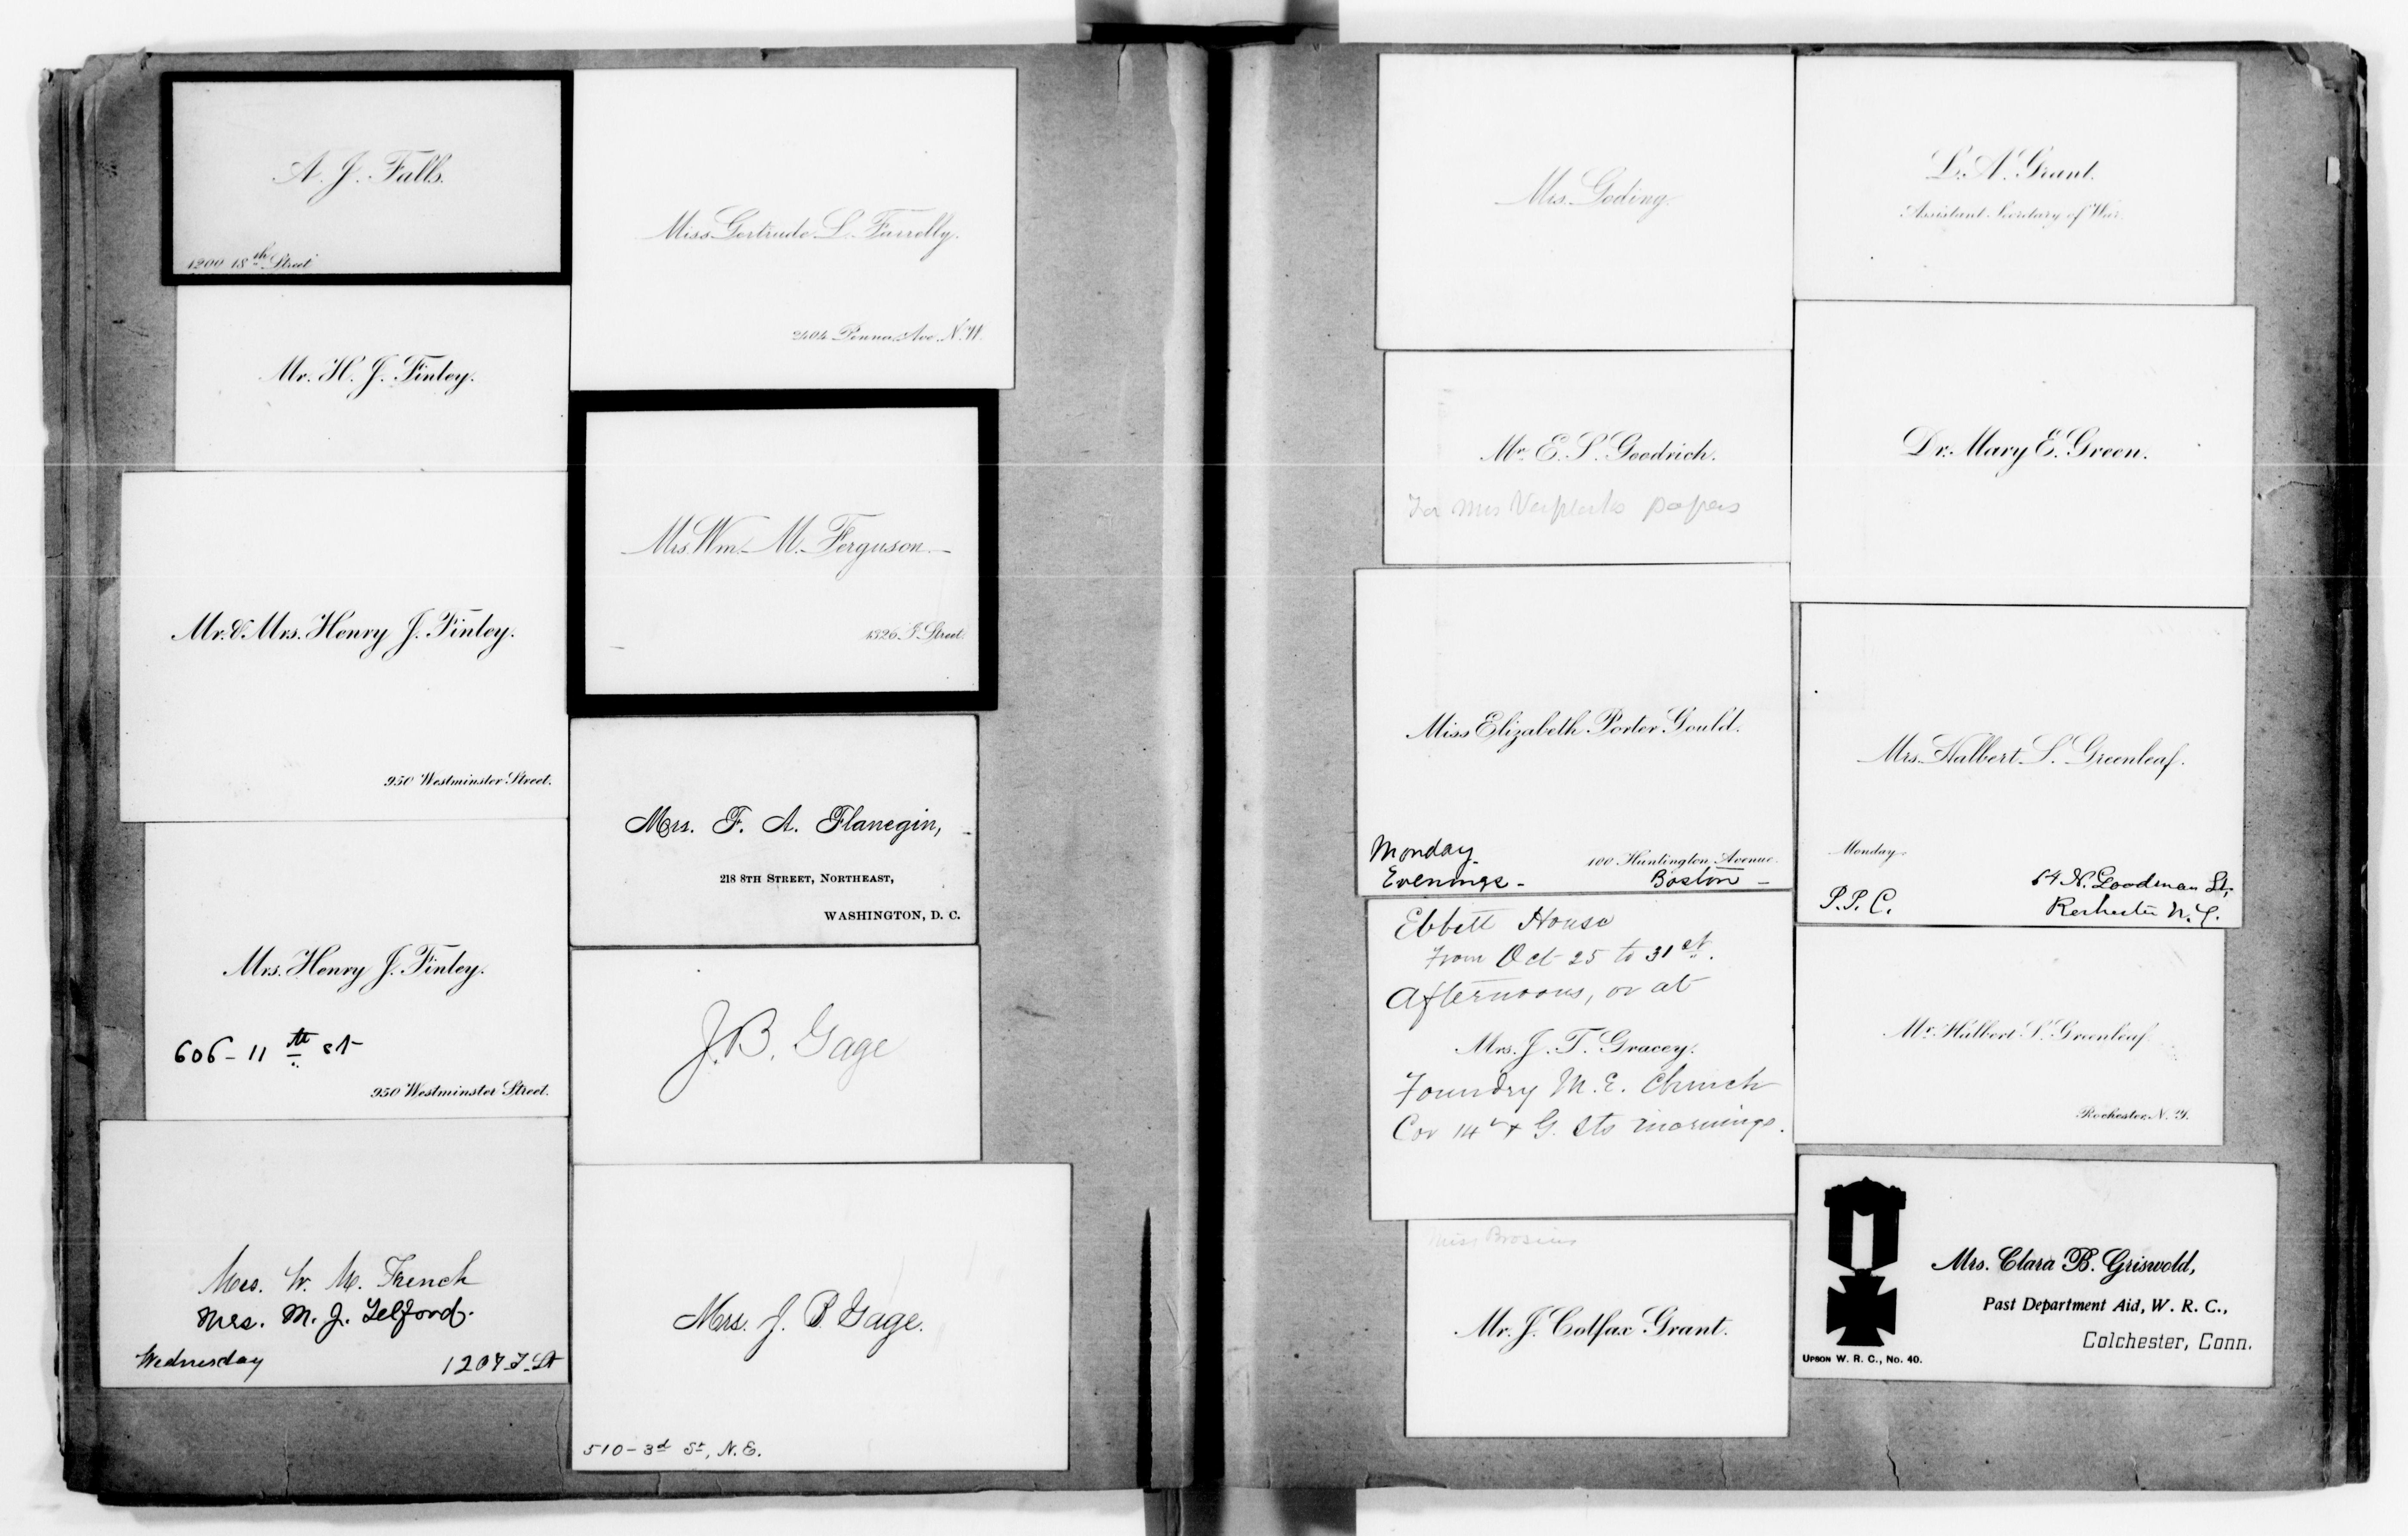 A. J. Falls.
1200 18th Street
Mr. H. J. Finley.
Mr. & Mrs. Henry J. Finley.
950 Westminster Street.
Mrs. Henry J. Finley.
606 - 11th st
950 Westminster Street.
Mrs. W. M. French
Mrs. M. J. Telford.
Wednesday
1207 F. St
Miss Gertrude L. Farrelly.
2404 Penna. Ave. N.W.
Mrs. Wm. M. Ferguson.
1326 I Street.
Mrs. F. A. Flanegin,
218 8TH STREET, NORTHEAST,
WASHINGTON, D. C.
J. B. Gage
Mrs. J. B. Gage.
510 - 3d St, N. E.
Mrs. Goding.
Mr. E. S. Goodrich.
For Mrs papers
Miss Elizabeth Porter Gould.
Monday
Evenings -
100 Huntington Avenue.
Boston -
Ebbitt House
From Oct 25 to 31st.
Afternoons, or at
Mrs. J. T. Gracey.
Foundry M. E. Church
Cor 14th & G. Sts mornings.
Miss Brosius
Mr. J. Colfax Grant.
L. A. Grant.
Assistant Secretary of War.
Dr. Mary E. Green.
Mrs. Halbert S. Greenleaf.
Monday
P. P. C.
64 N. Goodman St,
Rochester N. Y.
Mr. Halbert S. Greenleaf
Rochester, N. Y.
Mrs. Clara B. Griswold,
Past Department Aid, W. R. C.,
Colchester, Conn.
UPSON W. R. C., NO. 40.